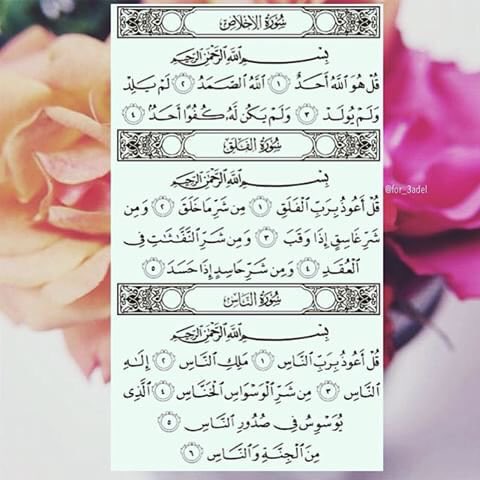 سُورَةُ الإِخْلَاصِ
بِسْمِ ٱللَّهِ ٱلرَّحْمَٰنِ ٱلرَّحِيمِ
قُلْ هُوَ ٱللَّهُ أَحَدٌ ١ ٱللَّهُ ٱلصَّمَدُ ٢ لَمْ يَلِدْ
وَلَمْ يُولَدْ ٣ وَلَمْ يَكُن لَّهُۥ كُفُوًا أَحَدٌۢ ٤
سُورَةُ الفَلَقِ
بِسْمِ ٱللَّهِ ٱلرَّحْمَٰنِ ٱلرَّحِيمِ
@for_3adel
قُلْ أَعُوذُ بِرَبِّ ٱلْفَلَقِ ١ مِن شَرِّ مَا خَلَقَ ٢ وَمِن
شَرِّ غَاسِقٍ إِذَا وَقَبَ ٣ وَمِن شَرِّ ٱلنَّفَّٰثَٰتِ فِى
ٱلْعُقَدِ ٤ وَمِن شَرِّ حَاسِدٍ إِذَا حَسَدَ ٥
سُورَةُ النَّاسِ
بِسْمِ ٱللَّهِ ٱلرَّحْمَٰنِ ٱلرَّحِيمِ
قُلْ أَعُوذُ بِرَبِّ ٱلنَّاسِ ١ مَلِكِ ٱلنَّاسِ ٢ إِلَٰهِ
ٱلنَّاسِ ٣ مِن شَرِّ ٱلْوَسْوَاسِ ٱلْخَنَّاسِ ٤ ٱلَّذِى
يُوَسْوِسُ فِى صُدُورِ ٱلنَّاسِ ٥
مِنَ ٱلْجِنَّةِ وَٱلنَّاسِ ٦